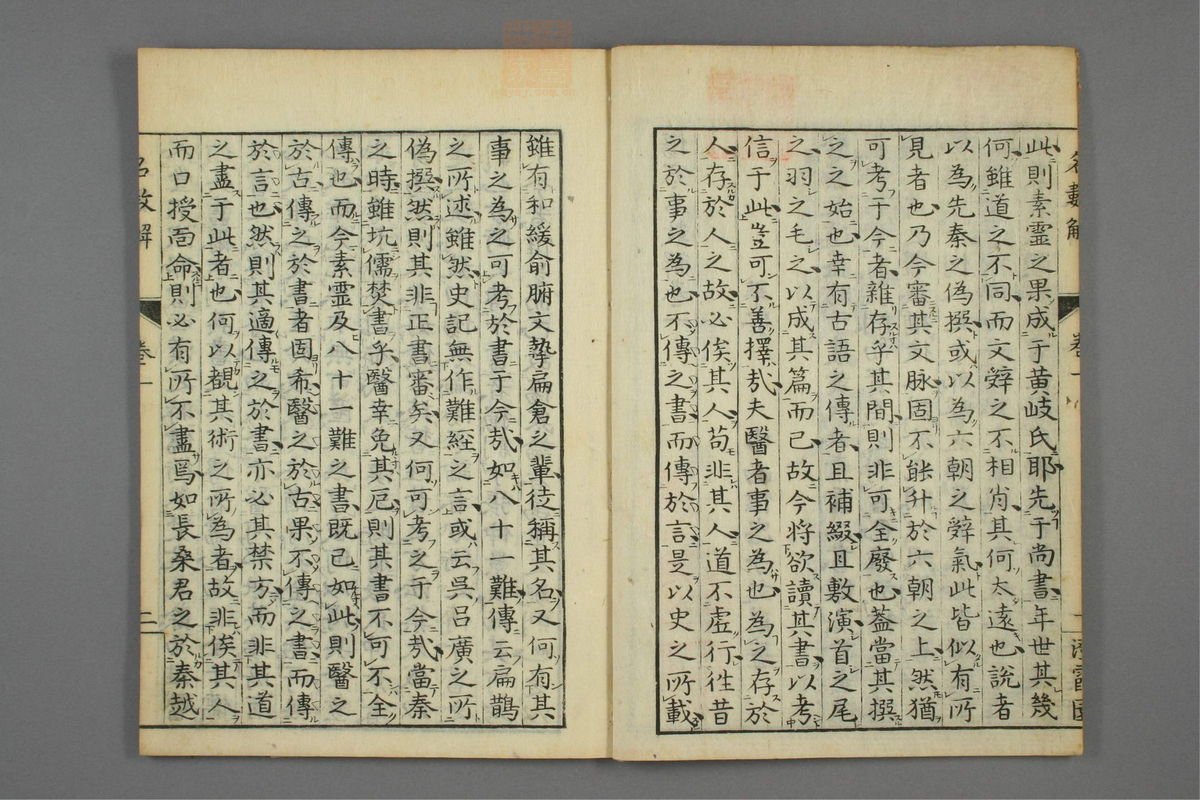 此則素靈之果成于黄岐氏耶先于尚書年世其幾
何雖道之不同而文辤之不相肖其何太遠也說者
以為先秦之偽撰或以為六朝之辤氣此皆似有所
見者也乃今審其文脉固不能升於六朝之上然猶
可考于今者雜存乎其間則非可全廢也蓋當其撰
之之始也幸有古語之傳者且補綴且敷演首之尾
之羽之毛之以成其篇而已故今将欲讀其書以考
信于此豈可不善擇哉夫醫者事之為也為之存於
人存於人之故必俟其人苟非其人道不虚行徃昔
之於事之為也不傳之書而傳於言是以史之所載
雖有和緩俞腑文摯扁倉之輩徒稱其名又何有其
事之為之可考於書于今哉如八十一難傳云扁鵲
之所述雖然史記無作難経之言或云呉呂廣之所
偽撰然則其非正書審矣又何可考之于今哉當秦
之時雖坑儒焚書乎醫幸免其厄則其書不可不全
傳也而今素靈及八十一難之書既已如此則醫之
於古傳之於書者固希醫之於古果不傳之書而傳
於言也然則其適傳之於書亦必其禁方而非其道
之盡于此者也何以覩其術之所為者故非俟其人
而口授面命則必有所不盡焉如長桑君之於秦越
名数解
巻一
二